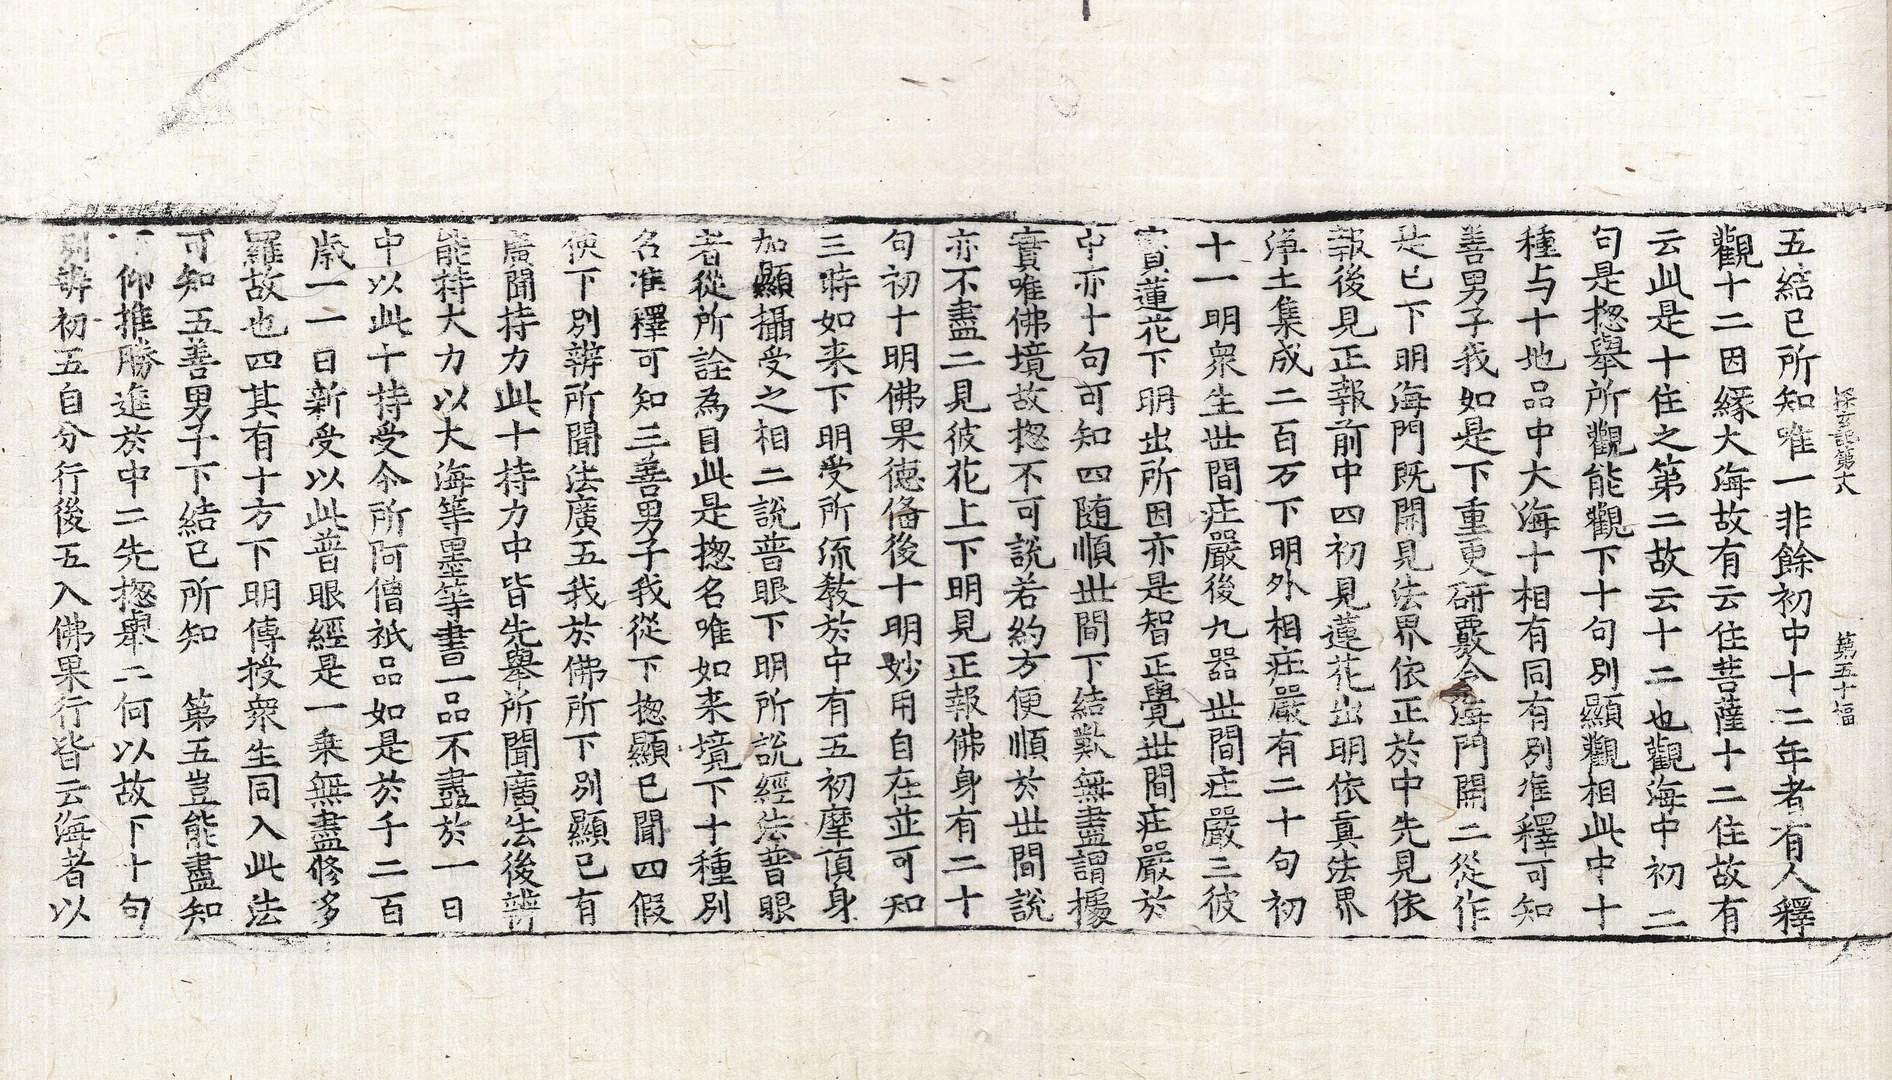 探玄記第十八 第五十福
五結已所知唯一非餘初中十二年者有人釋
觀十二因緣大海故有云住菩薩十二住故有
云此是十住之第二故云十二也觀海中初二
句是揔舉所觀能觀下十句別顯觀相此中十
種与十地品中大海十相有同有別准釋可知
善男子我如是下重更研覈令海門開二從作
是已下明海門既開見法界依正於中先見依
報後見正報前中四初見蓮花出明依真法界
淨土集成二百万下明外相莊嚴有二十句初
十一明衆生世間莊嚴後九器世間莊嚴三彼
寶蓮花下明出所因亦是智正覺世間莊嚴於
中亦十句可知四随順世間下結歎無盡謂據
實唯佛境故揔不可說若約方便順於世間說
亦不盡二見彼花上下明見正報佛身有二十
句初十明佛果德俻後十明妙用自在並可知
三時如来下明受所流教於中有五初摩頂身
加顯攝受之相二說普眼下明所說經法普眼
者從所詮為目此是揔名唯如来境下十種別
名准釋可知三善男子我從下揔顯已聞四假
使下別辨所聞法廣五我於佛所下別顯已有
廣聞持力此十持力中皆先舉所聞廣法後辨
能持大力以大海等墨等書一品不盡於一日
中以此十持受令所阿僧祇品如是於千二百
歲一一日新受以此普眼經是一乘無盡修多
羅故也四其有十方下明傳授衆生同入此法
可知五善男子下結已所知 第五豈能盡知
下仰推勝進於中二先揔舉二何以故下十句
別辨初五自分行後五入佛果行皆云海者以